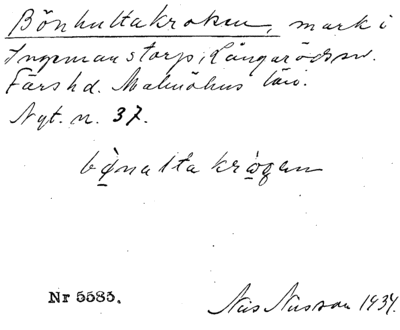 Bönhultakroken, mark i
Ingemanstorp, Långarödsn.
Färs hd. Malmöhus län.
Nyt. n. 37.
bǫ̀nalta krǫ̀gen
Nr 5583.
Nils Nilsson 1934.